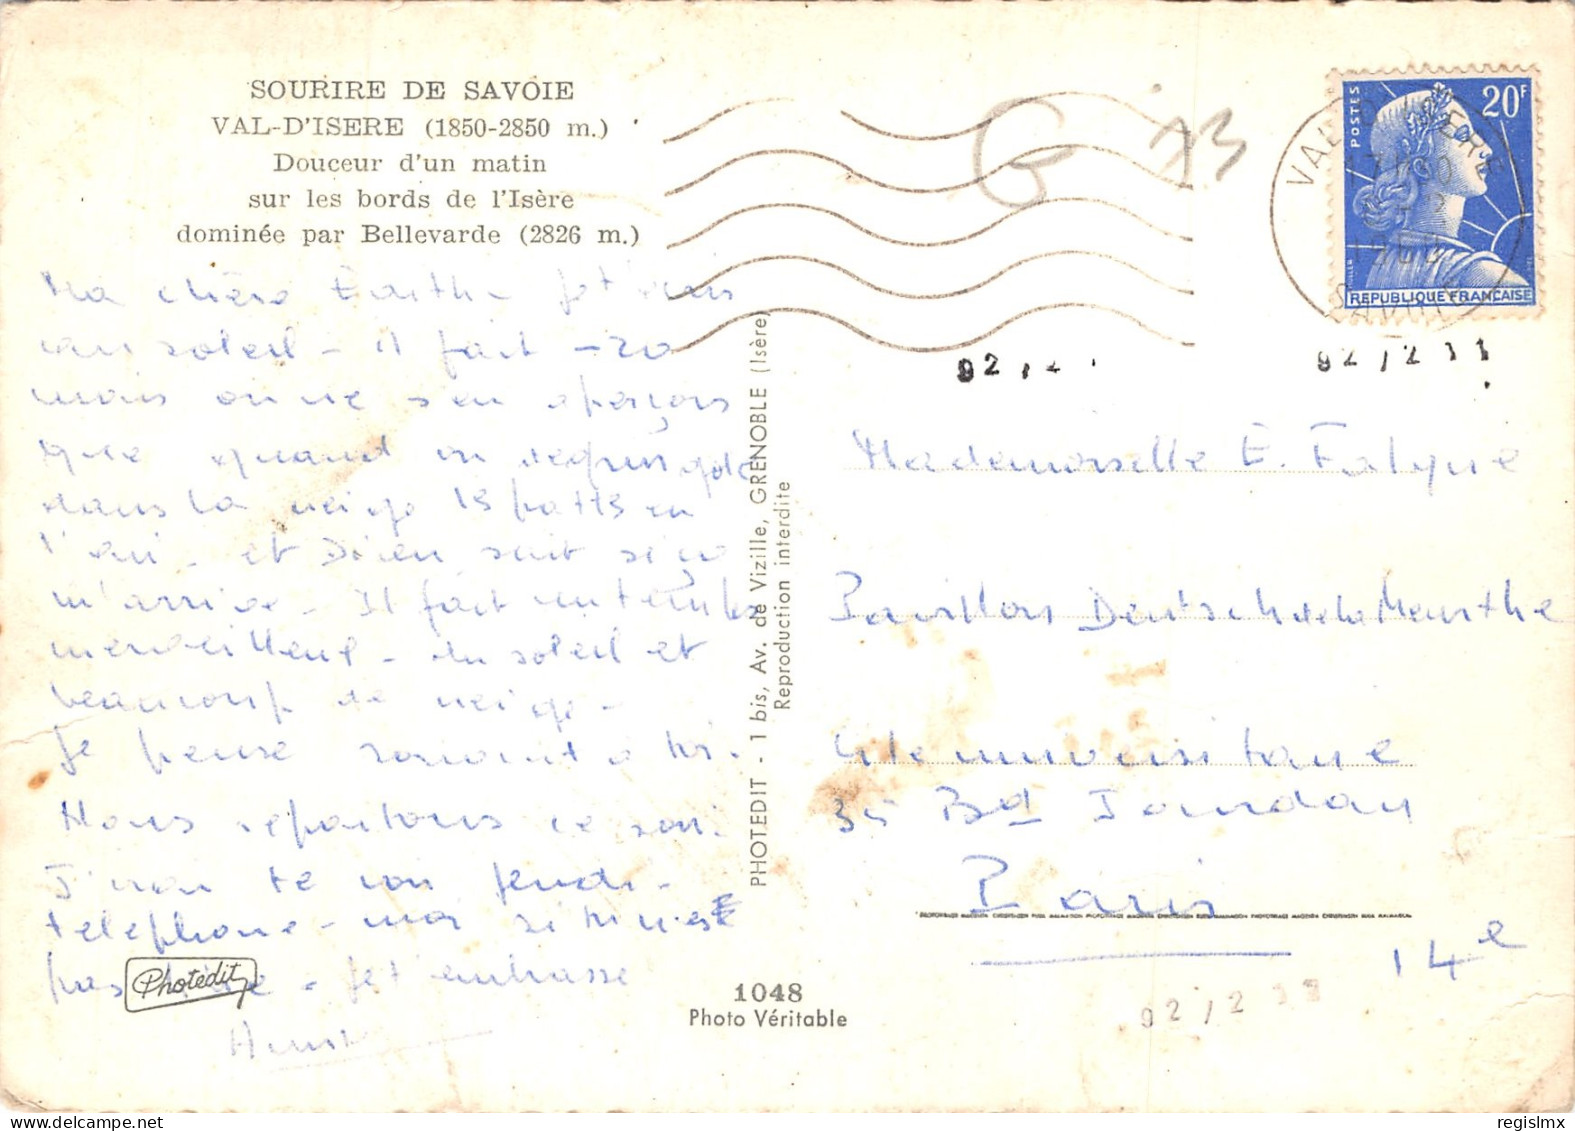 SOURIRE DE SAVOIE
VAL-D'ISERE (1850-2850 m.)
Douceur d'un matin
sur les bords de l'Isère
dominée par Bellevarde (2826 m.)
Ma chère Edith - je t'écris
au soleil - il fait -20
mais on ne s'en aperçois
que quand on
dans la neige les pattes en
l'air - et Dieu sait si ça
m'arrive - Il fait un temps
merveilleux - du soleil et
beaucoup de neige -
Je pense souvent à toi.
Nous repartons ce soir.
J'irai te voir jeudi -
telephone-moi si tu n'es
pas - Je t'embrasse
PHOTEDIT - 1 bis, Av. de Vizille, GRENOBLE (Isère)
Reproduction interdite
Photédit
1048
Photo Véritable
G
POSTES
20F
REPUBLIQUE FRANCAISE
VAL D'ISERE
SAVOIE
92,2
92,2 11
Mademoiselle E. Falque
Pavillon Deutsch de la Meurthe
Cité universitaire
35 Bd Jourdan
Paris
14e
92,2
delcampe.net
regislmx